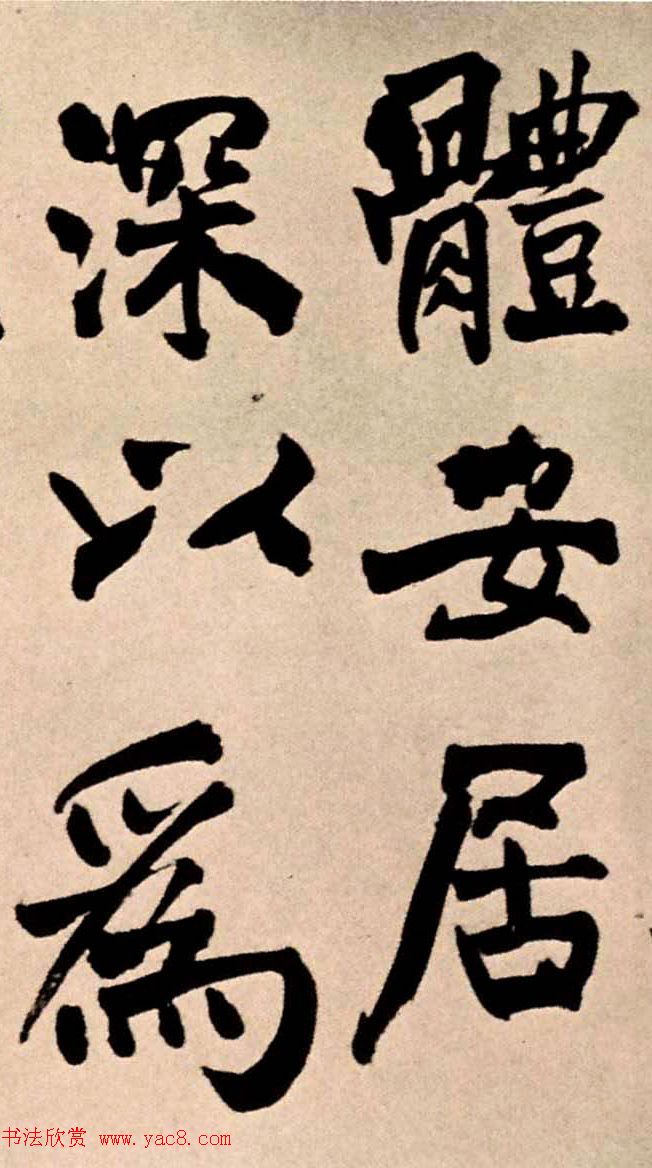 體安居
深以為
书法欣赏 www.yac8.com